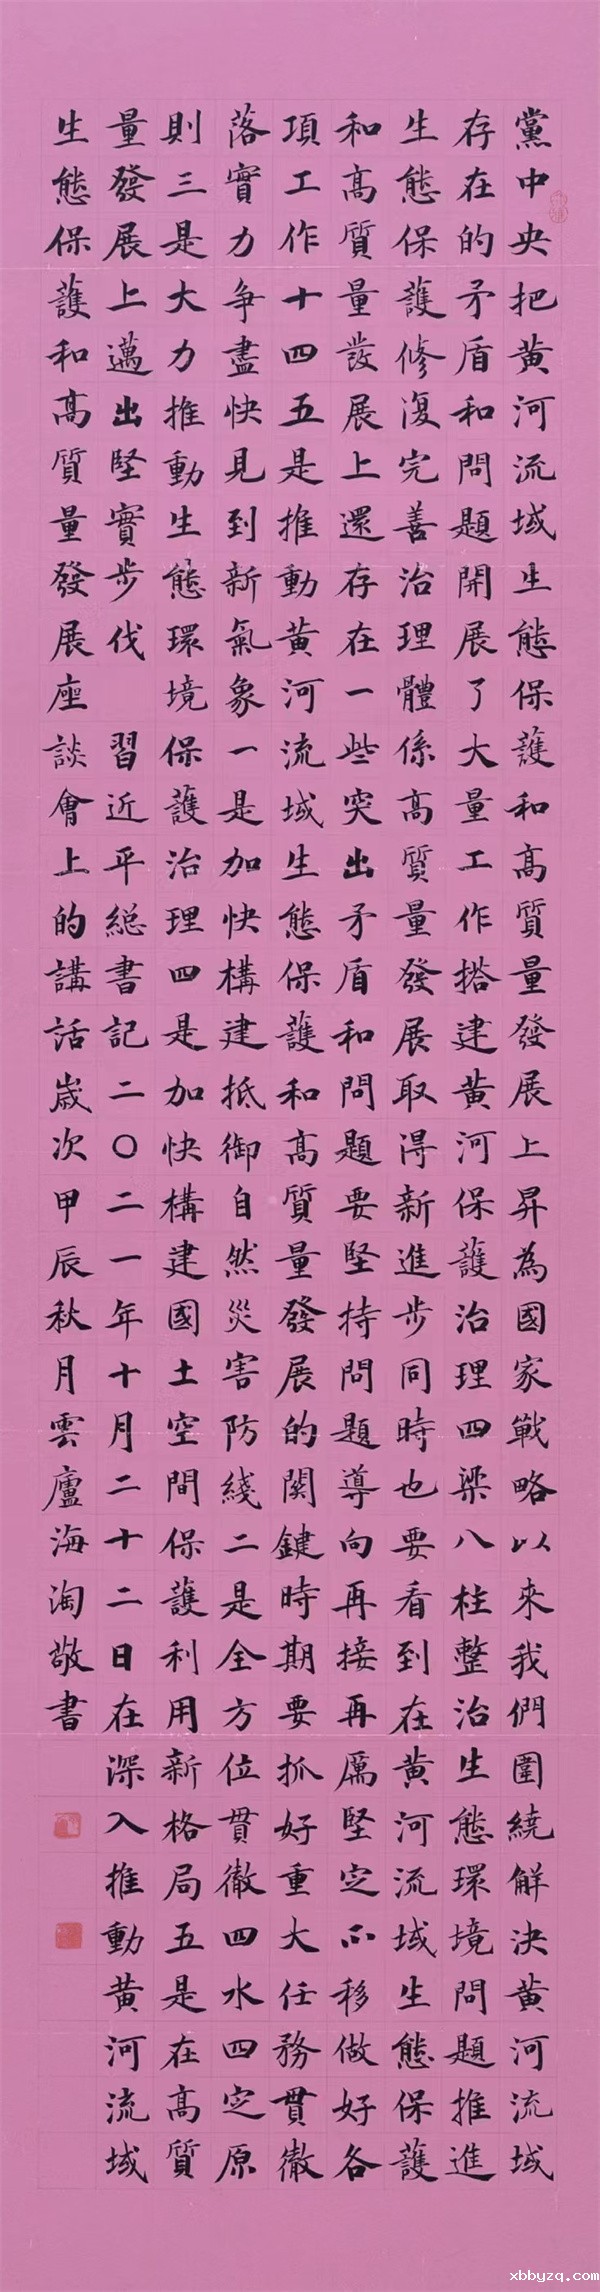 黨中央把黄河流域生態保護和高質量發展上昇為國家戰略以來我們圍繞解決黄河流域
存在的矛盾和問題開展了大量工作搭建黄河保護治理四梁八柱整治生態環境問題推進
生態保護修復完善治理體係高質量發展取得新進步同時也要看到在黄河流域生態保護
和高質量發展上還存在一些突出矛盾和問題要堅持問題導向再接再厲堅定不移做好各
項工作十四五是推動黄河流域生態保護和高質量發展的関鍵時期要抓好重大任務貫徹
落實力争盡快見到新氣象一是加快構建抵御自然災害防綫二是全方位貫徹四水四定原
則三是大力推動生態環境保護治理四是加快構建國土空間保護利用新格局五是在高質
量發展上邁出堅實步伐 習近平総書記二〇二一年十月二十二日在深入推動黄河流域
生態保護和高質量發展座談會上的講話歲次甲辰秋月雲廬海淘敬書
xbbyzq.com